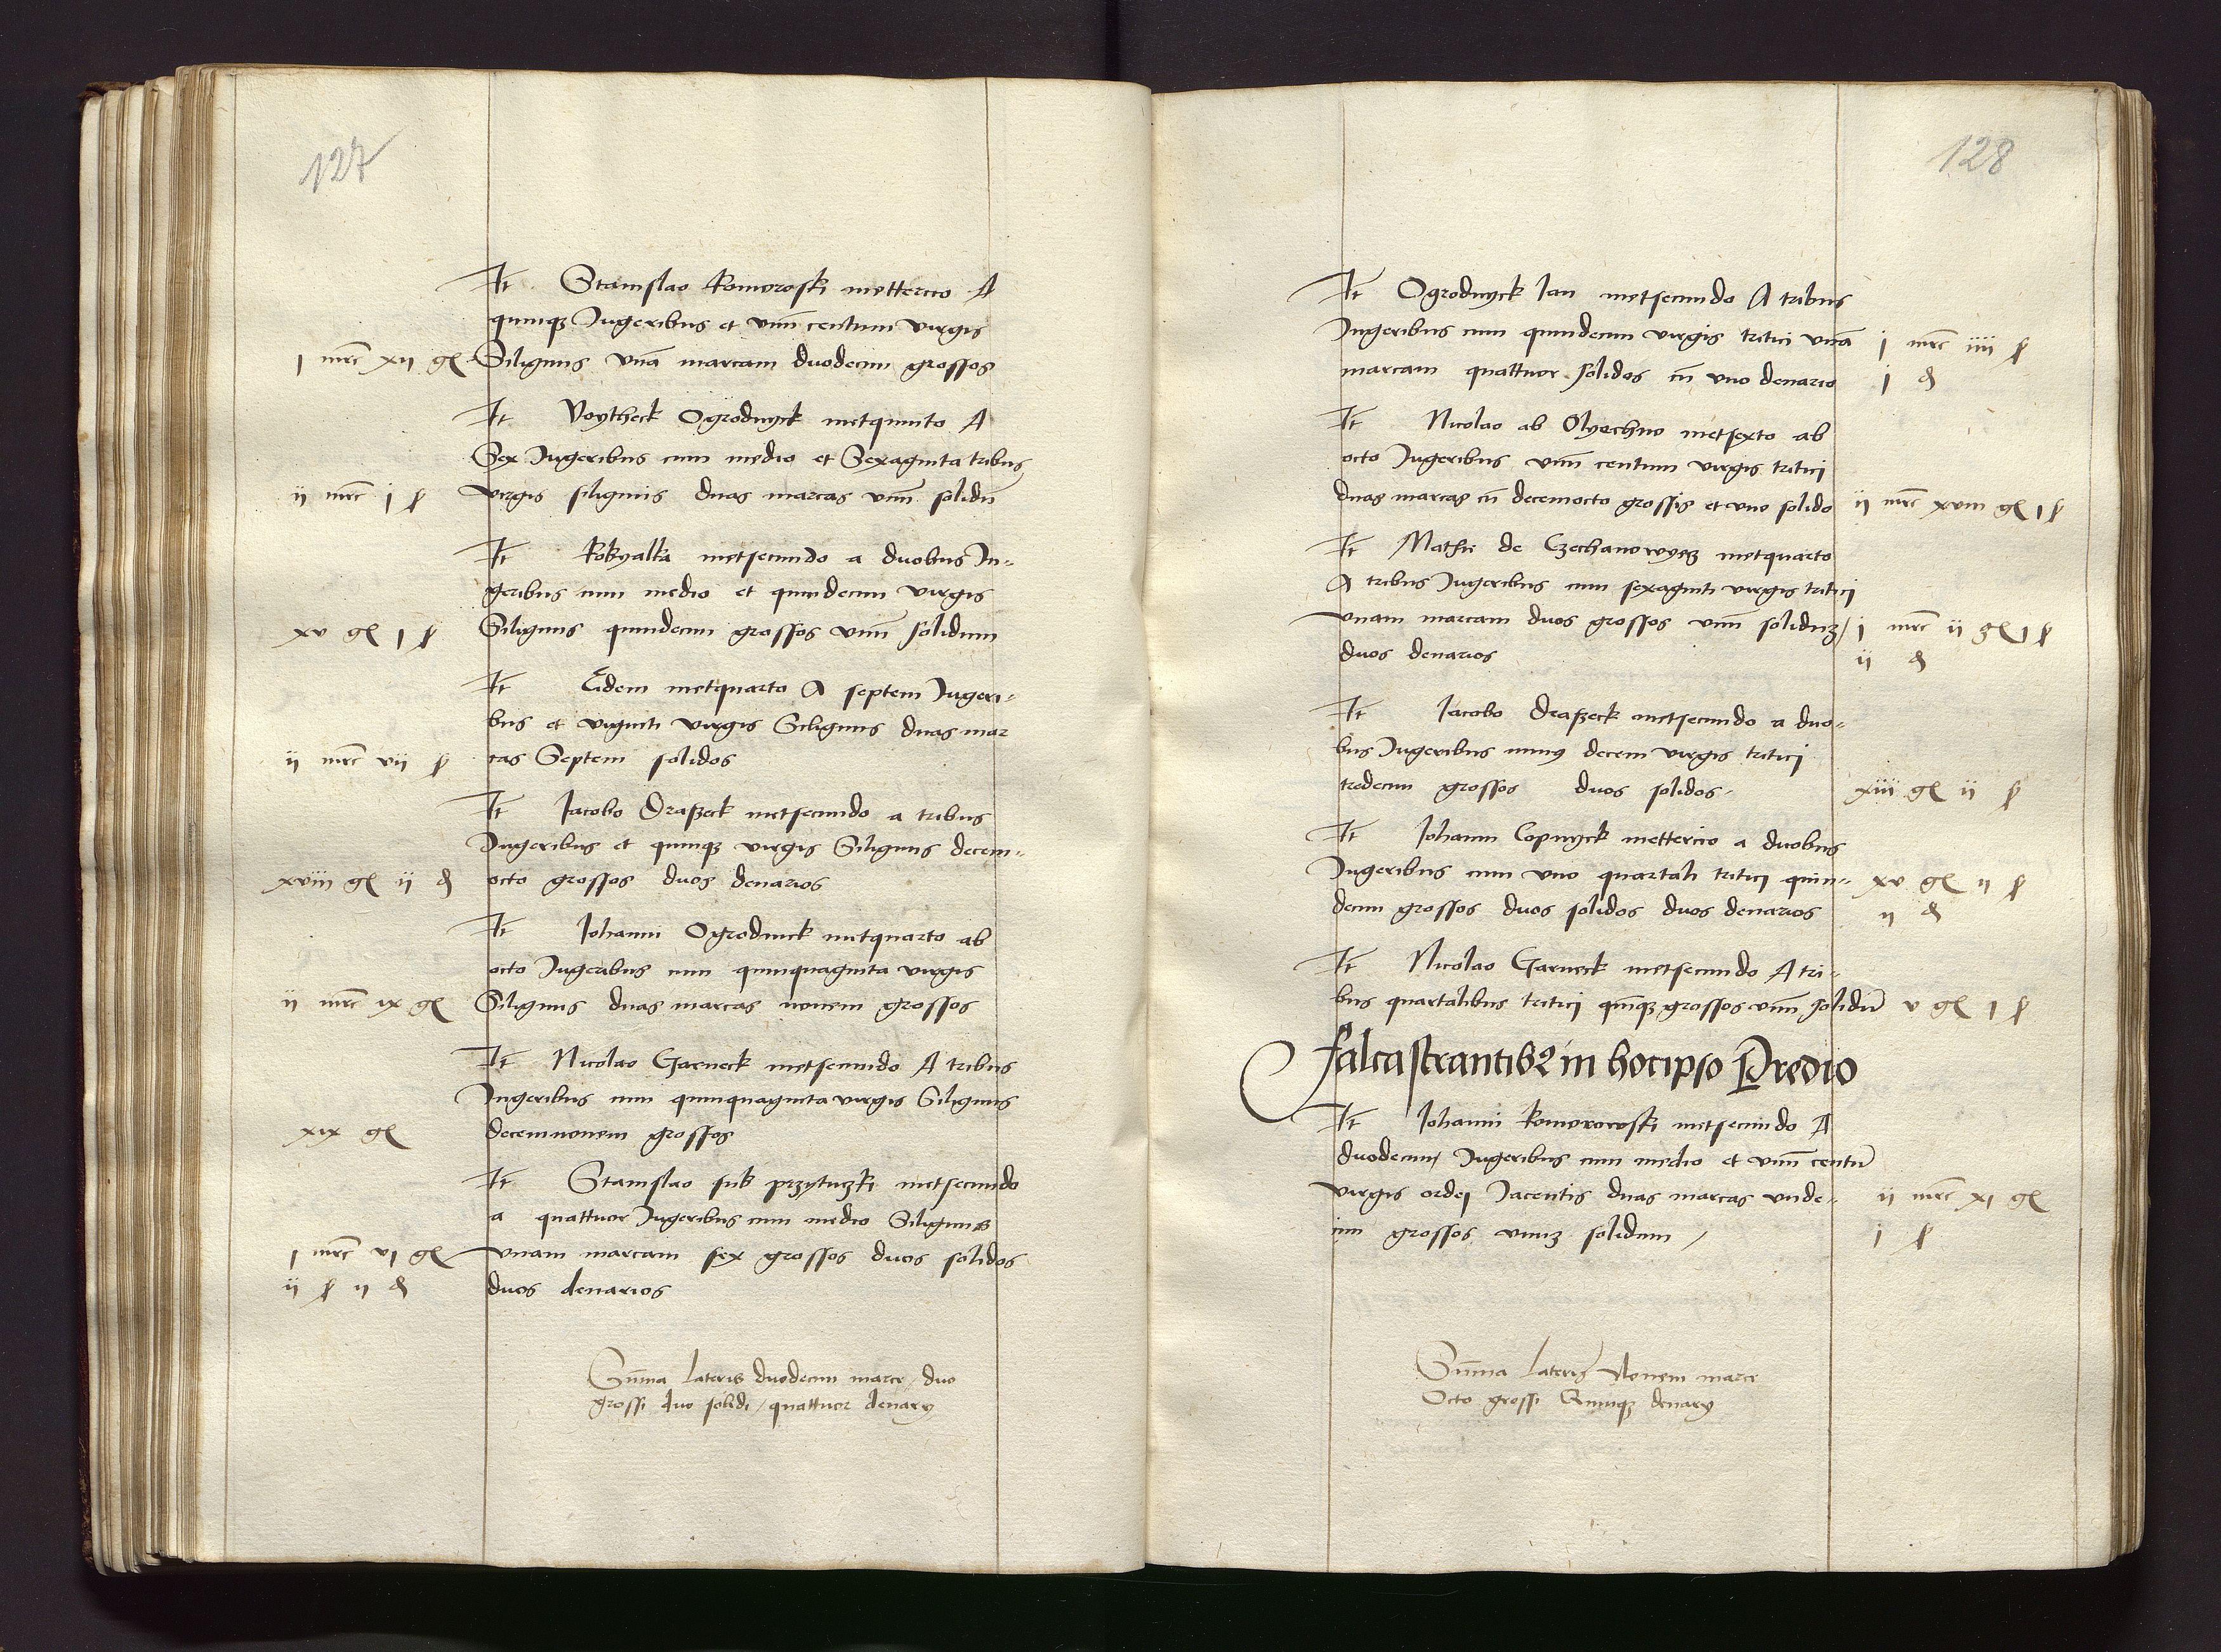 127
It Stanislao Komoroski mettercio A
quinqȝ Jugeribus et vnū centum virgis
j mrc xij gl Siliginis vnā marcam duodecim grossos
It Voytheck Ogrodnyck metquinto A
Sex Jugeribus cum medio et Sexaginta tribus
ij mrc j ß virgis siliginis duas marcas vnū solidū
It Kobyalka metsecundo a duobus Ju-
geribus cum medio et quindecim virgis
xv gl j ß Siliginis quindecim grossos vnū solidum
It Eidem metquarto A septem Jugeri-
bus et viginti virgis Siliginis duas mar
ij mrc vij ß cas Septem solidos
It Jacobo Draßeck metsecundo a tribus
Jugeribus et quinqȝ virgis Siliginis decem-
xviij gl ij d octo grossos duos denarios
It Johanni Ogrodnick metquarto ab
octo Jugeribus cum quinquaginta virgis
ij mrc ix gl Siliginis duas marcas nouem grossos
It Nicolao Garneck metsecundo A tribus
Jugeribus cum quinquaginta virgis Siliginis
xix gl decemnouem grossos
It Stanislao sub przytuczki metsecundo
a quattuor Jugeribus cum medio Siliginis
j mrc vj gl vnam marcam sex grossos duos solidos
ij ß ij d duos denarios
Sūma lateris duodecim marce / duo
grossi duo solidi / quattuor denarÿ
128
It Ogrodnyck Jan metsecundo A tribus
Jugeribus cum quindecim virgis tritici vnā j mrc iiij ß
marcam quattuor solidos cū vno denario j d
It Nicolao ab Olyechno metsexto ab
octo Jugeribus vnū centum virgis tritici
duas marcas cū decemocto grossis et vno solido ij mrc xviij gl j ß
It Mathie de Czechanowyecz metquarto
A tribus Jugeribus cum sexaginti virgis tritici
vnam marcam duos grossos vnū soliduȝ / j mrc ij gl j ß
duos denarios ij d
It Jacobo Draßeck metsecundo a duo-
bus Jugeribus minus decem virgis tritici
tredecim grossos duos solidos xiij gl ij ß
It Johanni Copnyck mettercio a duobus
Jugeribus cum vno quartali tritici quin- xv gl ij ß
decim grossos duos solidos duos denarios ij d
It Nicolao Garneck metsecundo A tri-
bus quartalibus tritici quīqȝ grossos vnū solidū v gl j ß
Falcastrantibꝫ in hoc ipso Predio
It Johanni Komorowski metsecundo A
duodecim Jugeribus cum medio et vnū centū
virgis ordej Jacentis duas marcas vnde- ij mrc xj gl
cim grossos vnuȝ solidum / j ß
Sūma lateris Nouem marce
Octo grossi Quinqȝ denarÿ